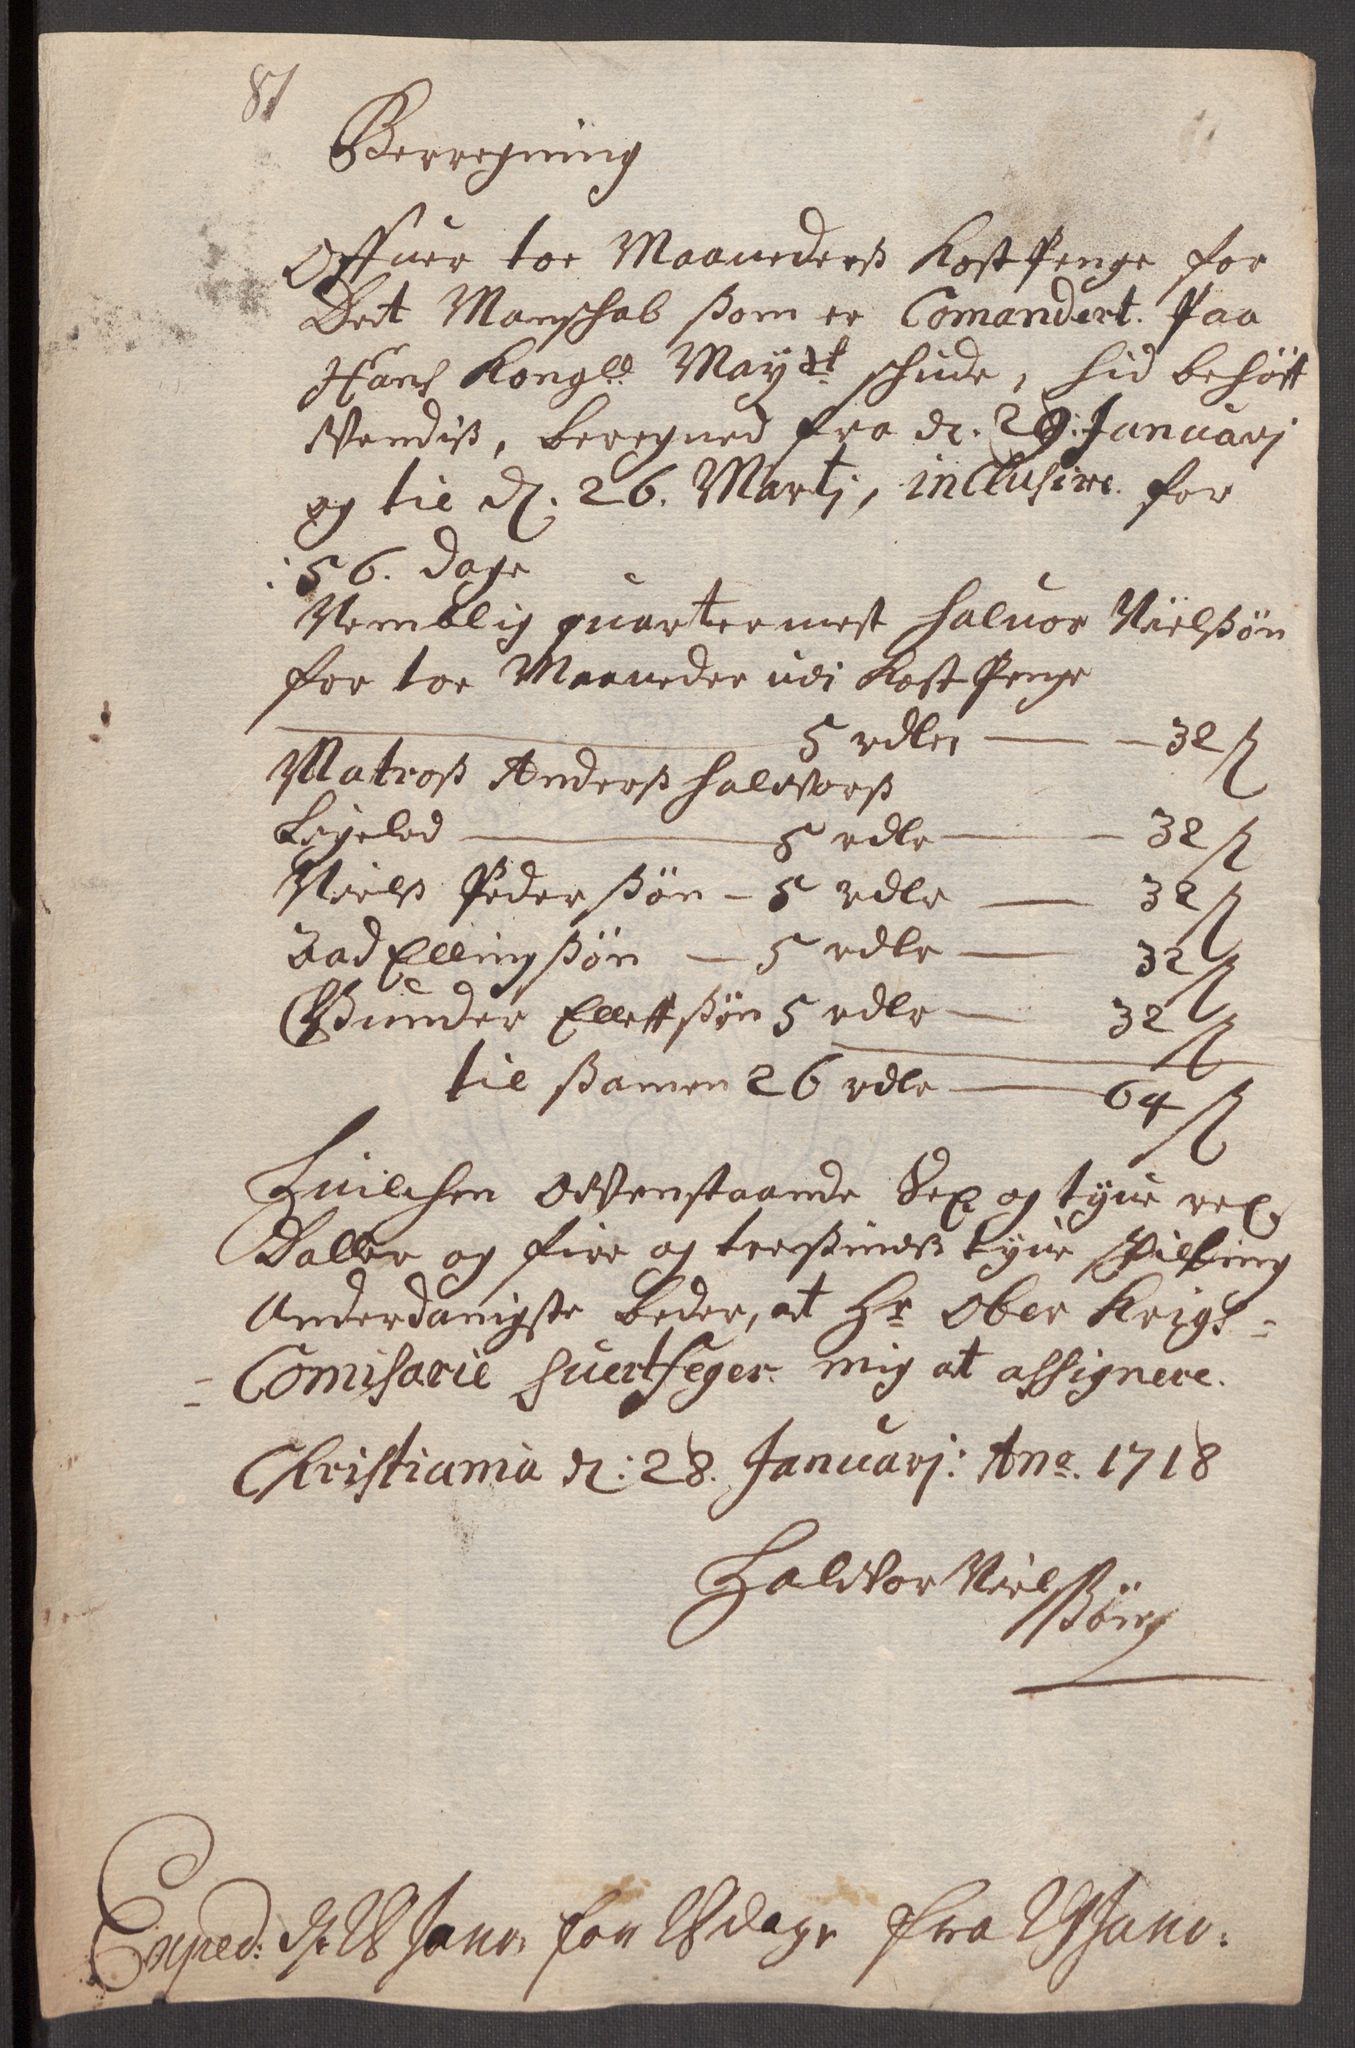 81
Berregning
Offuer toe Maanederß Kost Penge for
Det Manschab ßom er Comandert. Paa
Hans Kongl: May:st schude, hid behöft
Vendiß, beregned fra d. 29: Januarj
og til d. 26. Martj, inclusive. for
:56. dage
Nemblig quartermest Haluor Nielßön
for toe Maaneder udi Kost Penge
5 rdler — 32 ß
Matroß Anderß Halvorß
Ligeled — 5 rdlr — 32 ß
Nielß Pederßön — 5 rdlr — 32 ß
Ellingßön — 5 rdlr — 32 ß
Gunder Elleffßön 5 rdlr — 32 ß
til ßamen 26 rdlr — 64 ß
Huilchen ovenstaande Sex og tyve rex
Daller og fire og treßindß tyve skilling
Underdanigste beder, at Hr Ober Krigs-
Comisarie mig at assignere.
Christiania d: 28. Januarj: Ano. 1718
Halvor Niel
ßön
Exped: d. 28 Janv. for 28 dage fra 29 Janv: